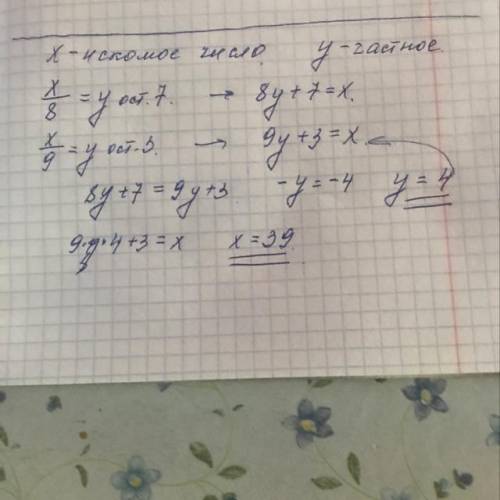 x - искомое число. y - частное.
x/8 = y ост. 7. → 8y + 7 = x.
x/9 = y ост. 3. → 9y + 3 = x
8y + 7 = 9y + 3 -y = -4 y = 4
9·y·4 + 3 = x x = 39.